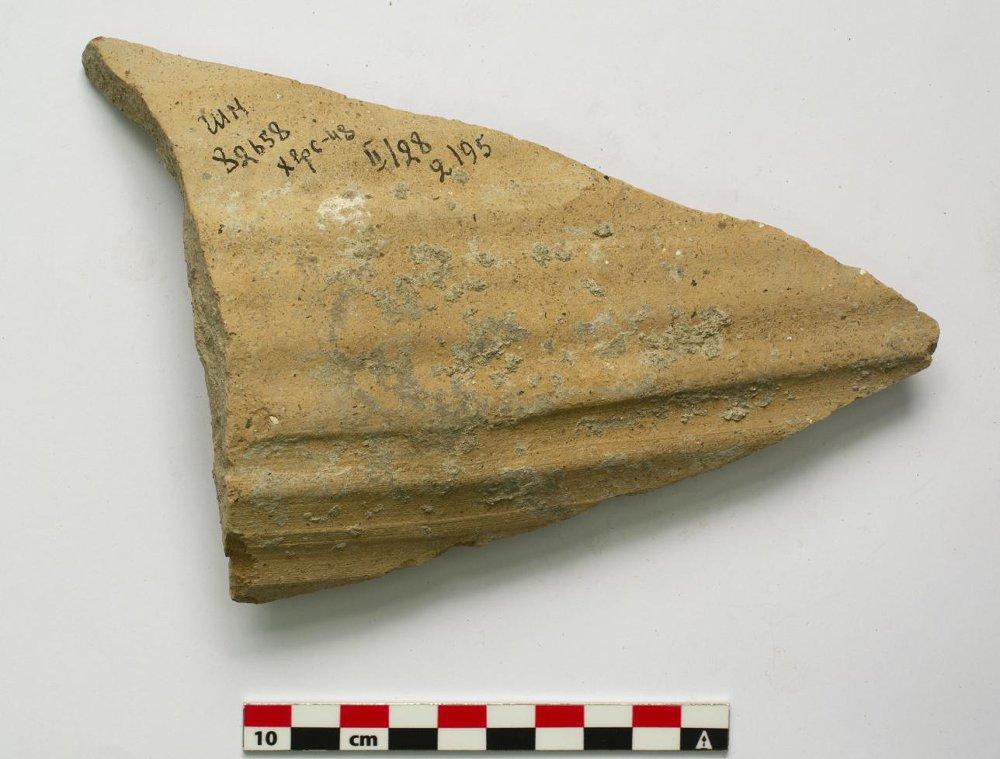 ШН
82658
Херс-48 II/128
2/95
10 cm